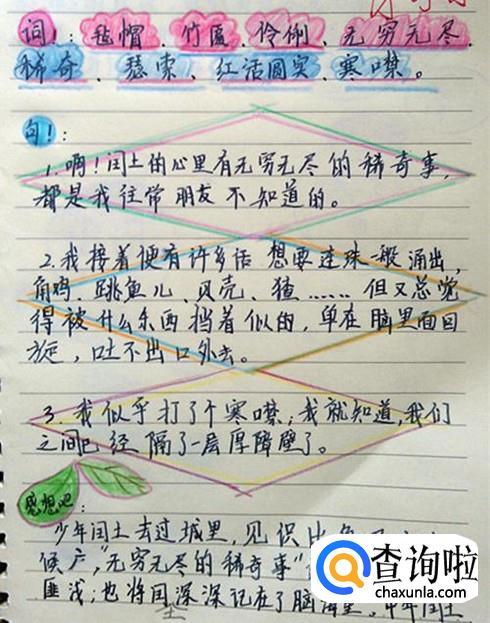 词!:毡帽、竹匾、伶俐、无穷无尽、
稀奇、瑟索、红活圆实、寒噤。
句!:
1.啊!闰土的心里有无穷无尽的稀奇事,
都是我往常朋友不知道的。
2.我接着便有许多话 想要连珠一般涌出,
角鸡、跳鱼儿、贝壳、猹……但又总觉
得被什么东西挡着似的,单在脑里面回
旋,吐不出口外去。
3.我似乎打了个寒噤;我就知道,我们
之间已经隔了一层厚障壁了。
感想吧:
少年闰土去过城里,见识比
候户,"无穷无尽的稀奇事"
匪浅;也将闰深深记在了脑海里。中年闰土
土
查询啦
chaxunla.com